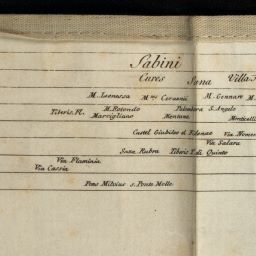 Sabini
Cures Sana Villa
M. Leonessa M. Carvani M. Gennaro M.
Tiberis. Fl. M. Rotondo Palombara S. Angelo
Marcigliano Mentana Monticelli
Castel Giubileo et Fidenæ Via Nomen
Via Salara
Saxa Rubra Tiberis T. di Quinto
Via Flaminia
Via Cassia
Pons Milvius s. Ponte Molle